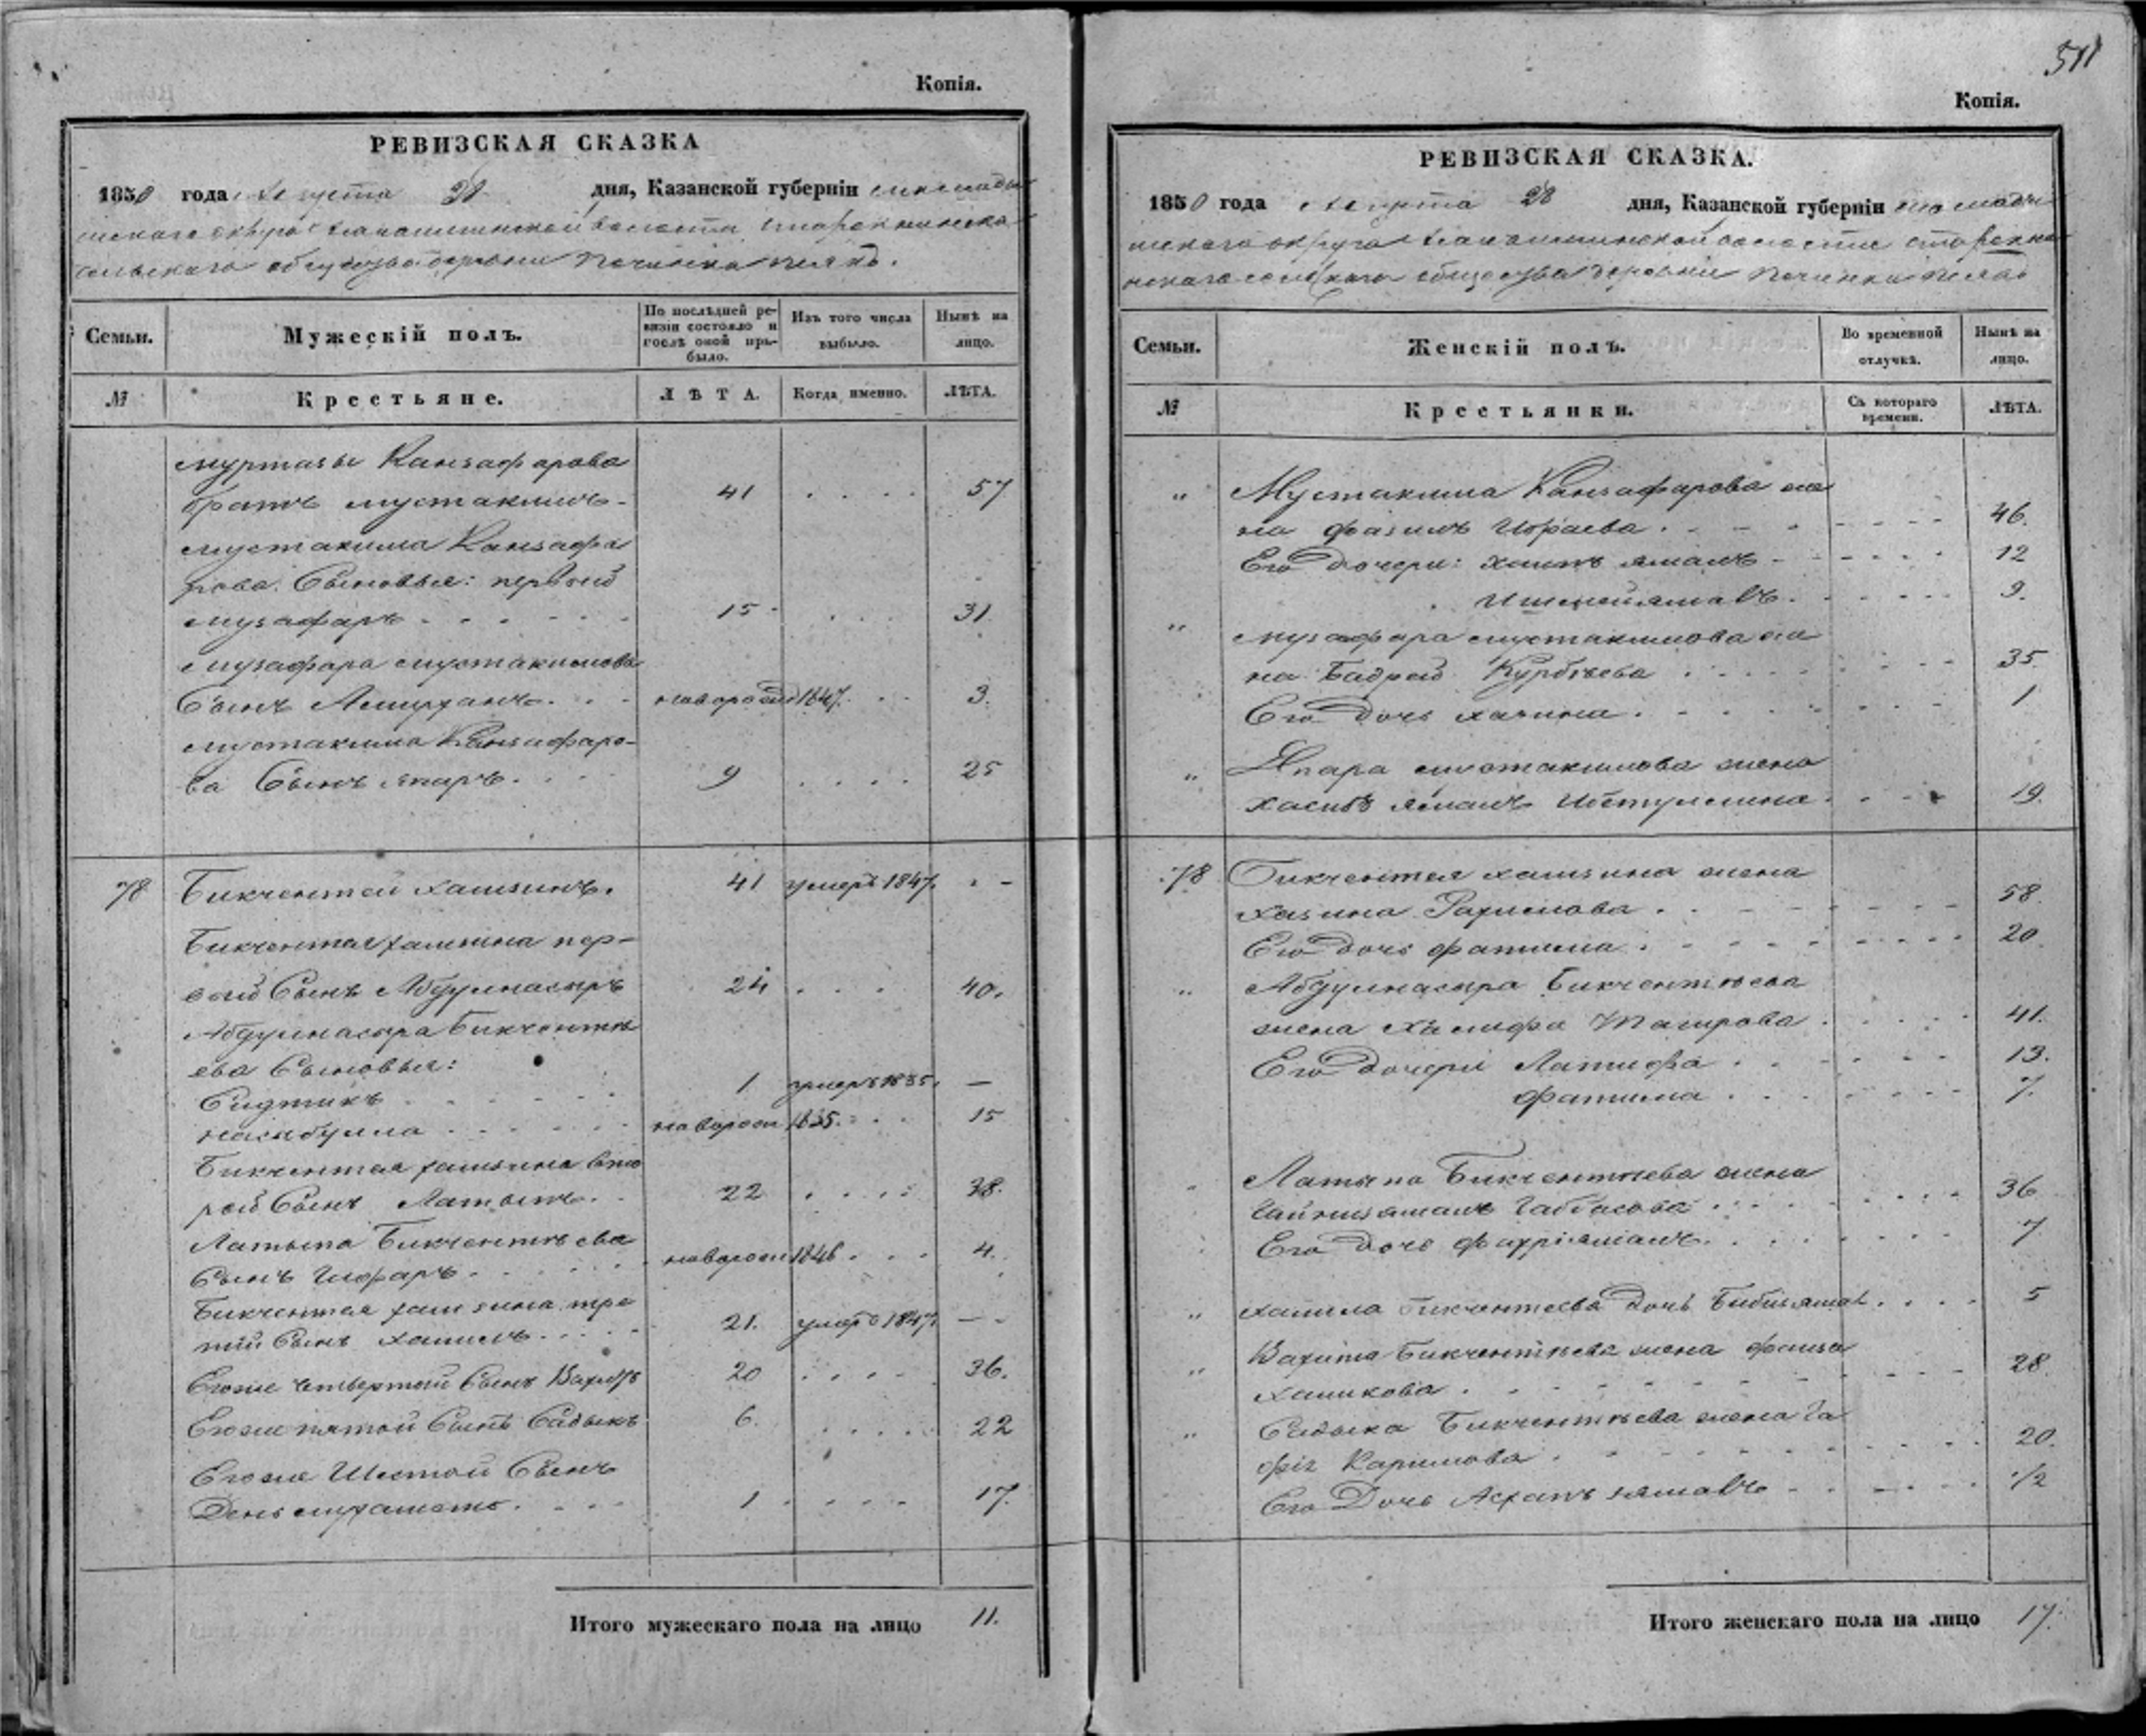 Копія.
РЕВИЗСКАЯ СКАЗКА
1850 года Августа 28 дня, Казанской губерніи
сельскаго общества деревни Починка
Семьи.
Мужескій полъ.
По послѣдней ревизіи состояло и послѣ оной прибыло.
Изъ того числа выбыло.
Нынѣ на лицо.
№
Крестьяне.
ЛѢТА.
Когда именно.
ЛѢТА.
муртазы Канзафарова
братъ мустакимъ 41 57
мустакима Канзафа
рова Сыновья: первой
музафаръ 15 31
музафара мустакимова
Сынъ Амирханъ новорожд 1847 3.
мустакима Канзафаро-
ва Сынъ япаръ 9 25
78 Бикчентей хамзинъ. 41 умеръ 1847. -
Бикчентея хамзина пер-
вой Сынъ Абдулнасыръ 24 40.
Абдулнасыра Бикчентѣ
ева Сыновья:
Сидтикъ 1 умеръ 1835. —
насыбулла новорож 1835 15
Бикчентея хамзина вто
рой Сынъ Латыпъ 22 38.
Латыпа Бикчентѣева
Сынъ новорож 1846 4.
Бикчентея хамзина тре
тій Сынъ халилъ 21. умеръ 1847. —
Егоже четвертой Сынъ Вахитъ 20 36.
Егоже пятой Сынъ Садыкъ 6. 22
Егоже Шестой Сынъ
Денъмухаметъ 1 17.
Итого мужескаго пола на лицо 11.
511
Копія.
РЕВИЗСКАЯ СКАЗКА.
1850 года Августа 28 дня, Казанской губерніи
нскаго сельскаго общества деревни Починка
Семьи.
Женскій полъ.
Во временной отлучкѣ.
Нынѣ на лицо.
№
Крестьянки.
Съ котораго времени.
ЛѢТА.
" Мустакима Канзафарова же
на 46.
Его дочери: 12
9.
" музафара мустакимова же
на Бадрей Курбѣева 35
Его дочь хазина 1
" Япара мустакимова жена
19.
78 Бикчентея хамзина жена
хазина Рахимова 58.
Его дочь фатима 20.
" Абдулнасыра Бикчентѣева
жена халифа Тагирова 41.
Его дочери Латифа 13.
фатима 7.
Латыпа Бикчентѣева жена
Габбасова 36
Его дочь фахріямалъ 7
" халила Бикчентеева дочь Бибиямал 5
" Вахита Бикчентѣева жена
28.
" Садыка Бикчентѣева жена Га
фія Каримова 20.
Его Дочь 1/2
Итого женскаго пола на лицо 17.